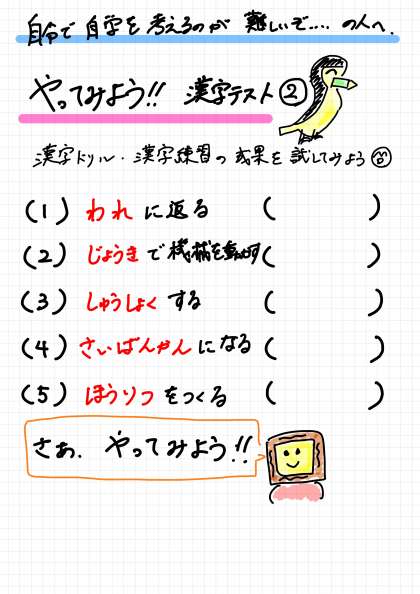 自分で自学を考えるのが難しいぞ....の人へ.
やってみよう!! 漢字テスト②
漢字ドリル・漢字練習の成果を試してみよう
(1) われ に返る ( )
(2) じょうき で機械を動かす ( )
(3) しゅうしょく する ( )
(4) さいばんかん になる ( )
(5) ほうりつ をつくる ( )
さあ. やってみよう!!